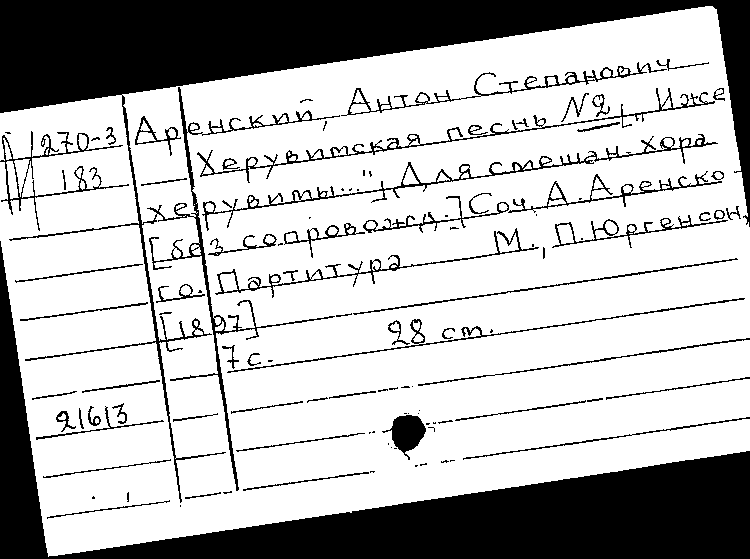 Аренский, Антон Степанович
М 270-3
183
Херувимская песнь №2, „Иже
херувимы...", Для смешан. хора
[без сопровожд.] Соч. А. Аренско-
го. Партитура М., П. Юргенсон,
[1897]
7 с. 28 cm.
21613